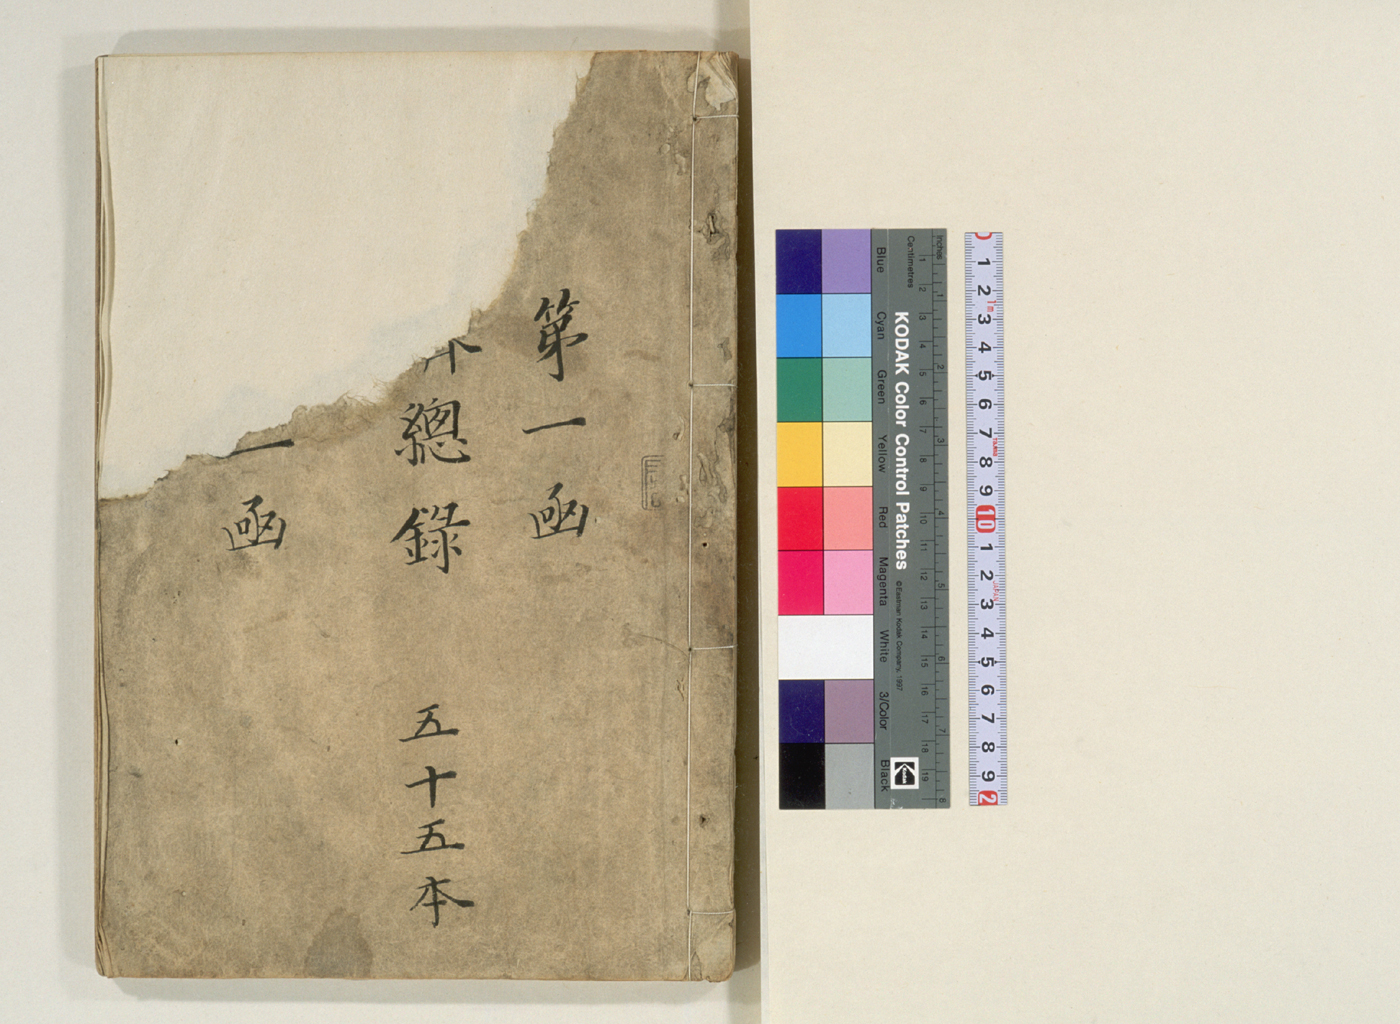 第一函
總錄 五十五本
一函
Blue
Cyan
Green
Yellow
Red
Magenta
White
3/Color
Black
KODAK Color Control Patches
©Eastman Kodak Company, 1997
Kodak
Centimetres
1 2 3 4 5 6 7 8 9 10 11 12 13 14 15 16 17 18 19
Inches
1 2 3 4 5 6 7 8
0 1 2 3 4 5 6 7 8 9 10 1 2 3 4 5 6 7 8 9 2
1m